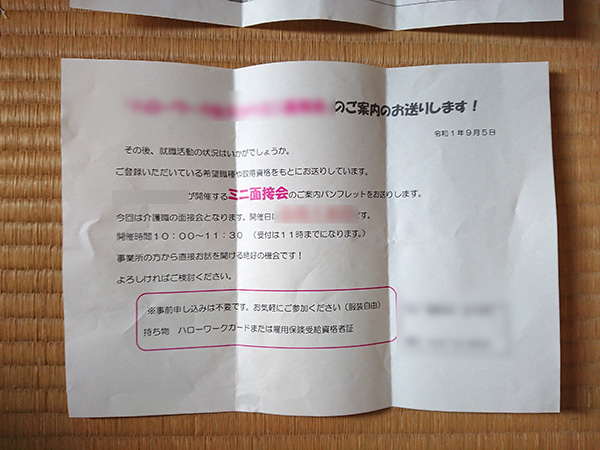 のご案内のお送りします！
令和１年９月５日
その後、就職活動の状況はいかがでしょうか。
ご登録いただいている希望職種や取得資格をもとにお送りしています。
が開催するミニ面接会のご案内パンフレットをお送りします。
今回は介護職の面接会となります。開催日に　です。
開催時間１０：００～１１：３０　（受付は１１時までになります。）
事業所の方から直接お話を聞ける絶好の機会です！
よろしければご検討ください。
※事前申し込みは不要です。お気軽にご参加ください（服装自由）
持ち物　ハローワークカードまたは雇用保険受給資格者証